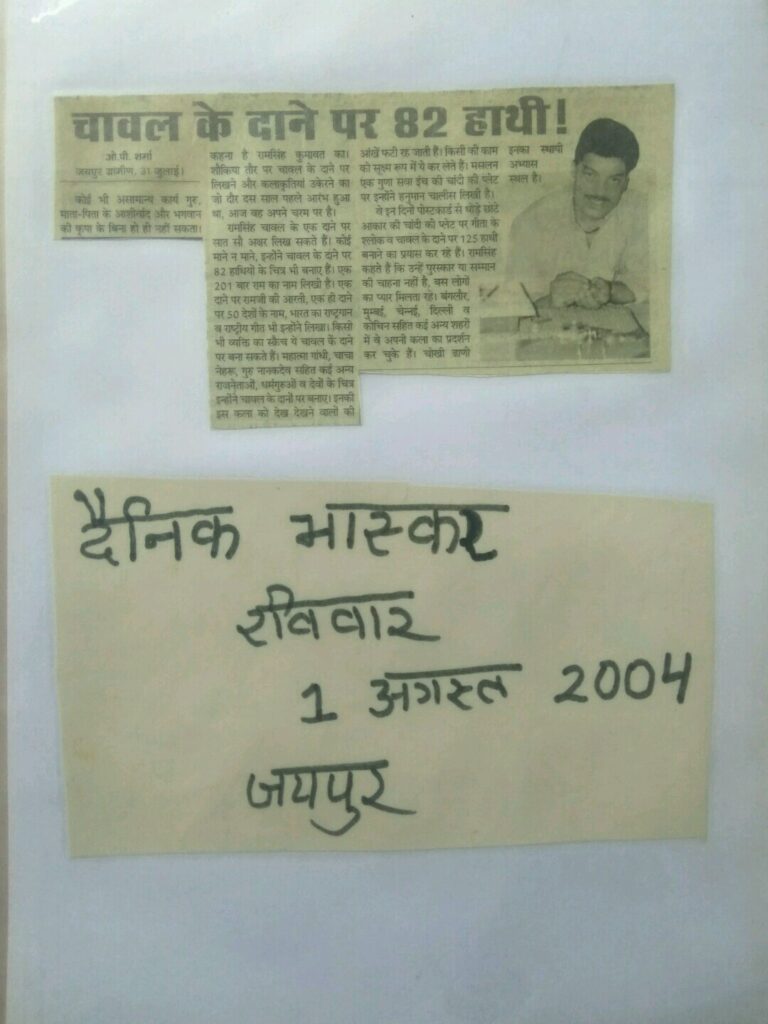 चावल के दाने पर 82 हाथी!
ओ.पी. शर्मा
जयपुर ग्रामीण, 31 जुलाई।
कोई भी असामान्य कार्य गुरु,
माता-पिता के आशीर्वाद और भगवान
की कृपा के बिना हो ही नहीं सकता।
कहना है रामसिंह कुमावत का।
शौकिया तौर पर चावल के दाने पर
लिखने और कलाकृतियां उकेरने का
जो दौर दस साल पहले आरंभ हुआ
था, आज वह अपने चरम पर है।
रामसिंह चावल के एक दाने पर
सात सौ अक्षर लिख सकते हैं। कोई
माने न माने, इन्होंने चावल के दाने पर
82 हाथियों के चित्र भी बनाए हैं। एक
201 बार राम का नाम लिखी है। एक
दाने पर रामजी की आरती, एक ही दाने
पर 50 देशों के नाम, भारत का राष्ट्रगान
व राष्ट्रीय गीत भी इन्होंने लिखा। किसी
भी व्यक्ति का स्कैच ये चावल के दाने
पर बना सकते हैं। महात्मा गांधी, चाचा
नेहरू, गुरु नानकदेव सहित कई अन्य
राजनेताओं, धर्मगुरुओं व देवों के चित्र
इन्होंने चावल के दानों पर बनाए। इनकी
इस कला को देख देखने वालों की
आंखें फटी रह जाती हैं। किसी की काम
को सूक्ष्म रूप में ये कर लेते हैं। मसलन
एक गुणा सवा इंच की चांदी की प्लेट
पर इन्होंने हनुमान चालीस लिखी है।
वे इन दिनों पोस्टकार्ड से थोड़े छोटे
आकार की चांदी की प्लेट पर गीता के
श्लोक व चावल के दाने पर 125 हाथी
बनाने का प्रयास कर रहे हैं। रामसिंह
कहते हैं कि उन्हें पुरस्कार या सम्मान
की चाहना नहीं है, बस लोगों
का प्यार मिलता रहे। बंगलौर,
मुम्बई, चेन्नई, दिल्ली व
कोचिन सहित कई अन्य शहरों
में वे अपनी कला का प्रदर्शन
कर चुके हैं। चोखी ढाणी
इनका स्थायी
अभ्यास
स्थल है।
दैनिक भास्कर
रविवार
1 अगस्त 2004
जयपुर